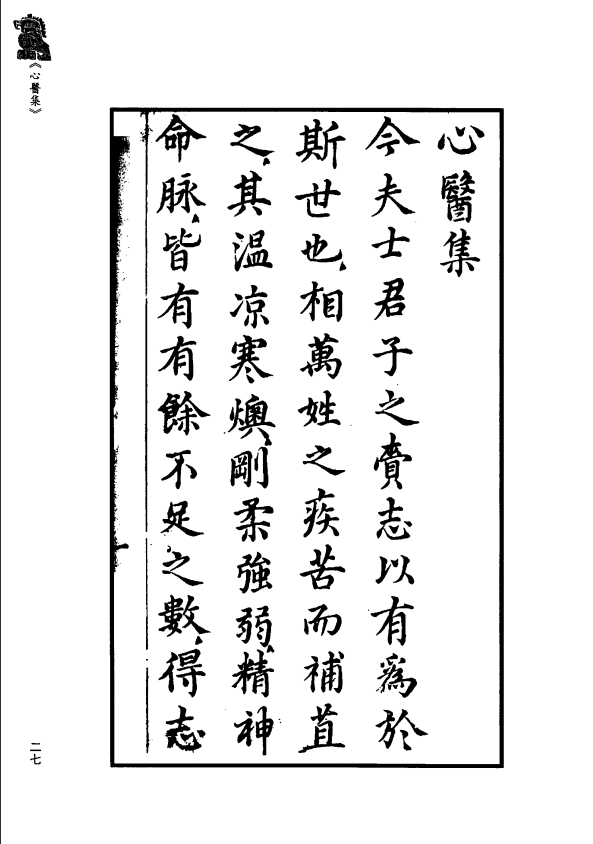 《心醫集》
心醫集
今夫士君子之賫志以有爲於
斯世也、相萬姓之疾苦而補苴
之、其溫凉寒燠、剛柔強弱、精神
命脉、皆有有餘不足之數、得志
二七